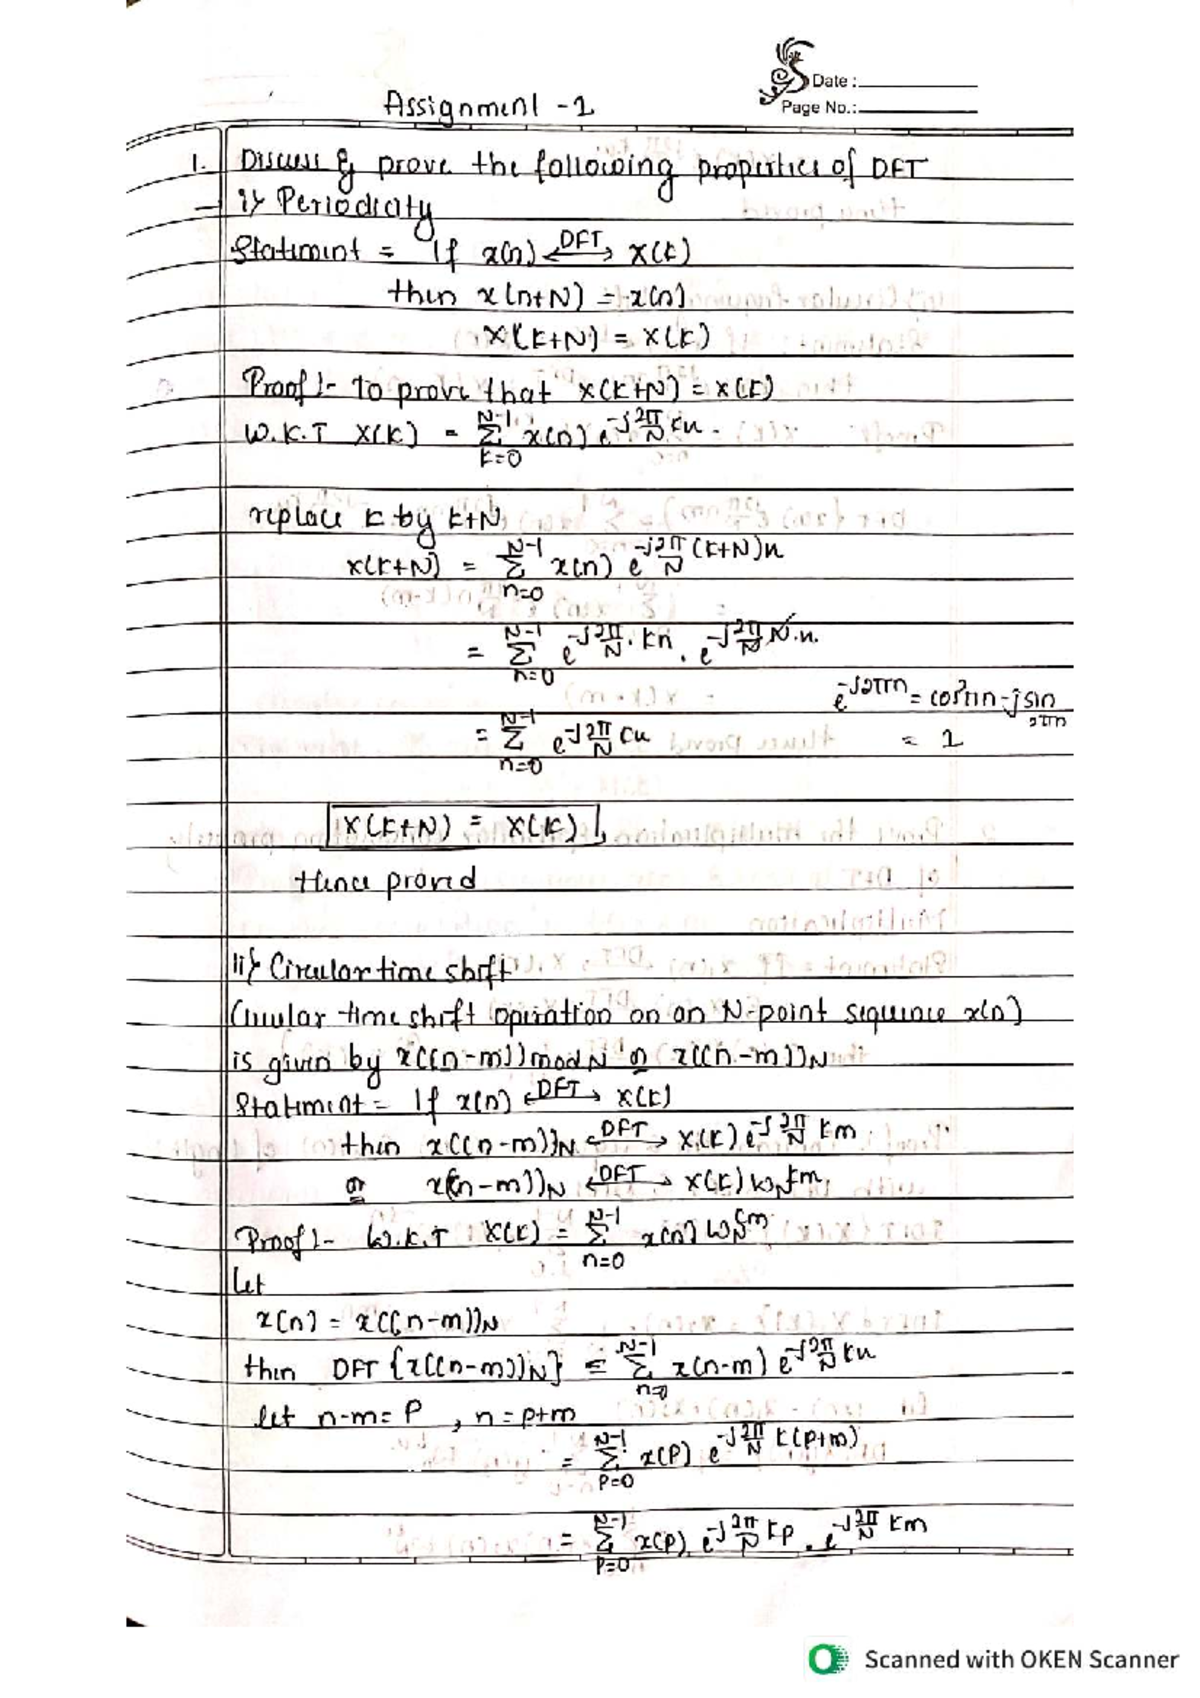 Date :
Page No.:
Assignment - 1
1. Discuss & prove the following properties of DFT
i) Periodicity
Statement = If x(n) <-DFT-> X(k)
then x(n+N) = x(n)
X(k+N) = X(k)
Proof :- To prove that X(k+N) = X(k)
W.K.T X(k) = Σ_{k=0}^{N-1} x(n) e^{-j 2π/N kn}.
replace k by k+N
X(k+N) = Σ_{n=0}^{N-1} x(n) e^{-j 2π/N (k+N)n}
= Σ_{n=0}^{N-1} e^{-j 2π/N . kn} . e^{-j 2π/N N.n}
e^{-j2πn} = cos2πn - j sin 2πn
= Σ_{n=0}^{N-1} e^{-j 2π/N kn} = 1
X(k+N) = X(k)
Hence proved
ii) Circular time shift
Circular time shift operation on an N-point sequence x(n)
is given by x((n-m))mod N or x((n-m))N
Statement = If x(n) <-DFT-> X(k)
then x((n-m))N <-DFT-> X(k) e^{-j 2π/N km}
or x((n-m))N <-DFT-> X(k) W_N^{km}
Proof :- W.K.T X(k) = Σ_{n=0}^{N-1} x(n) W_N^{km}
Let
x(n) = x((n-m))N
then DFT {x((n-m))N} = Σ_{n=0}^{N-1} x(n-m) e^{-j 2π/N kn}
let n-m = P , n = p+m
= Σ_{P=0}^{N-1} x(P) e^{-j 2π/N k(p+m)}
= Σ_{P=0}^{N-1} x(p) e^{-j 2π/N kp} . e^{-j 2π/N km}
Scanned with OKEN Scanner